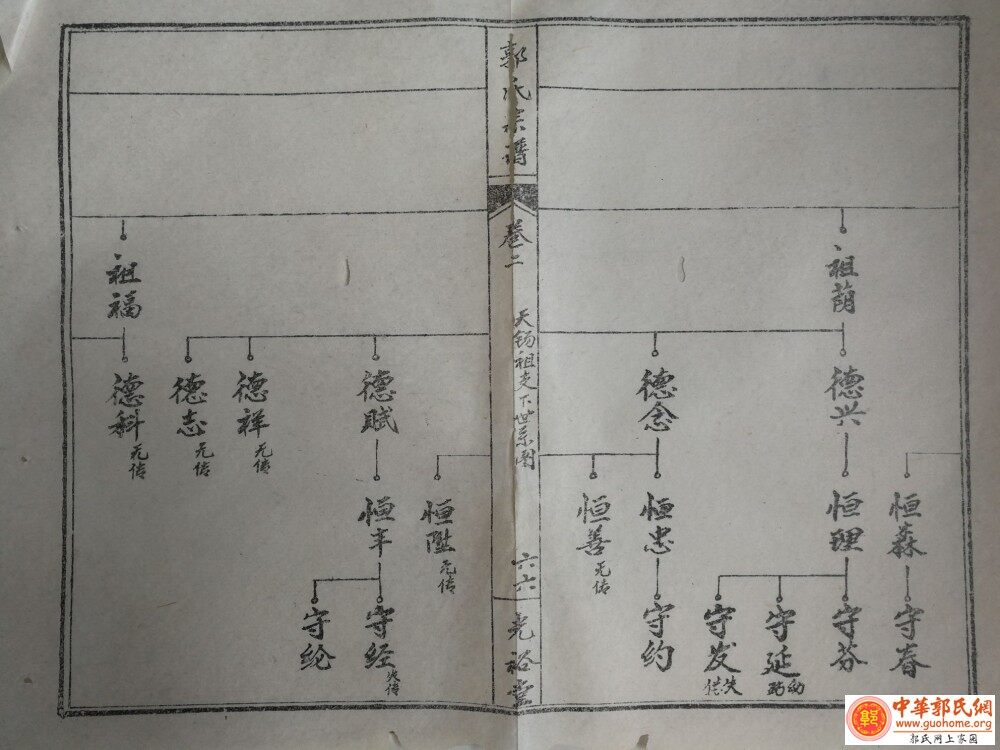 郭氏宗谱
卷二
天锡祖支下世系图
六六
尧裕堂
祖荫
德兴
德念
恒森
恒理
恒忠
恒善 无传
守春
守芬
守延 幼殇
守发 失传
守约
祖福
德赋
德祥 无传
德志 无传
德科 无传
恒陞 无传
恒丰
守经 失传
守纶
中華郭氏網
www.guohome.org
郭氏网上家园